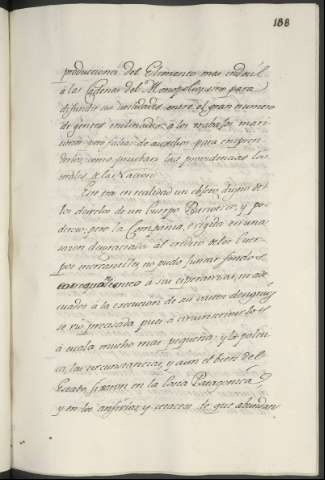 188
producciones del Elemento mas indocil
a las Cadenas del Monopolio, sino para
difundir sus utilidades entre el gran numero
de gentes inclinadas a los trabajos mari
timos con falta de auxilios para empren
derlos, como prueban las providencias
de la Nacion
Este era en realidad un objeto digno de
los desvelos de un Cuerpo Patriotico, y po
deroso; pero la Compañia, erigida en una
sazon desgraciada al credito de los Cuer
pos mercantiles, no pudo juntar fondos
a su esperanzas, ni ade
cuados a la execucion de sus vastos designios
se vio precisada pues a circunscribirlos
a escala mucho mas pequeña: y la polit
ca, las circunstancias, y aun el bien del
Estado fixaron en la Costa Patagonica,
y en los anfibios y cetaceos de que abundan